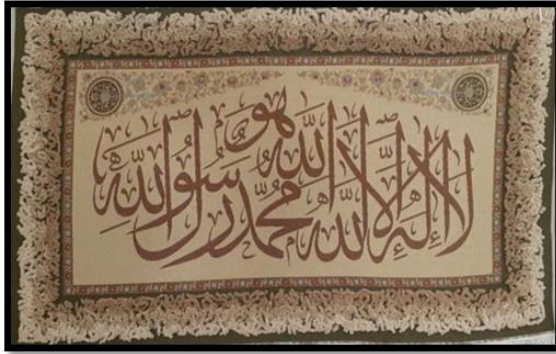 هو
الله
لا إله إلا الله محمد رسول الله